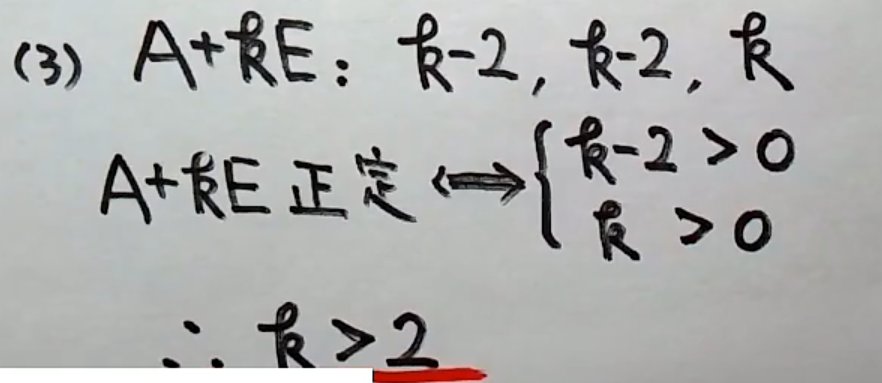 (3) A+kE: k-2, k-2, k
A+kE 正定 ⟺ { k-2 > 0
k > 0
∴ k > 2